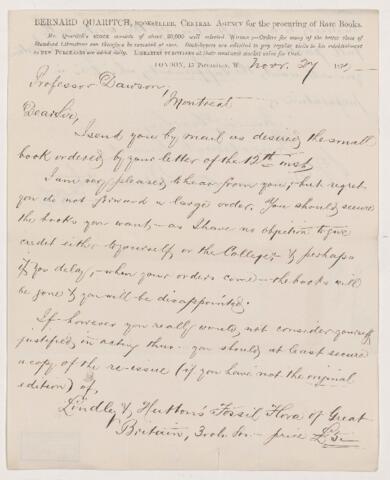 BERNARD QUARITCH, BOOKSELLER, CENTRAL AGENCY for the procuring of Rare Books.
Mr. Quaritch's STOCK consists of about 50,000 well selected WORKS—Orders for many of the better class of
Standard Literature can therefore be executed at once. Book-buyers are solicited to pay regular visits to his establishment
as NEW PURCHASES are added daily. LIBRARIES PURCHASED at their utmost market value for Cash.
LONDON, 15 PICCADILLY, W. Novr. 27
Professor Dawson,
Montreal
Dear Sir,
I send you by mail as desired the small
book ordered by your letter of the 12th inst.
I am very pleased to hear from you, but regret
you do not forward a large order. You should secure
the books you want — as I have no objection to give
credit either to yourself, or the College; & perhaps
if you delay, — when your orders come — the books will
be gone & you will be disappointed.
If however you really would not consider yourself
justified in acting thus — you should at least secure
a copy of the re-issue (if you have not the original
edition) of,
Lindley & Hutton's Fossil Flora of Great
Britain, 3 vols 8vo — price